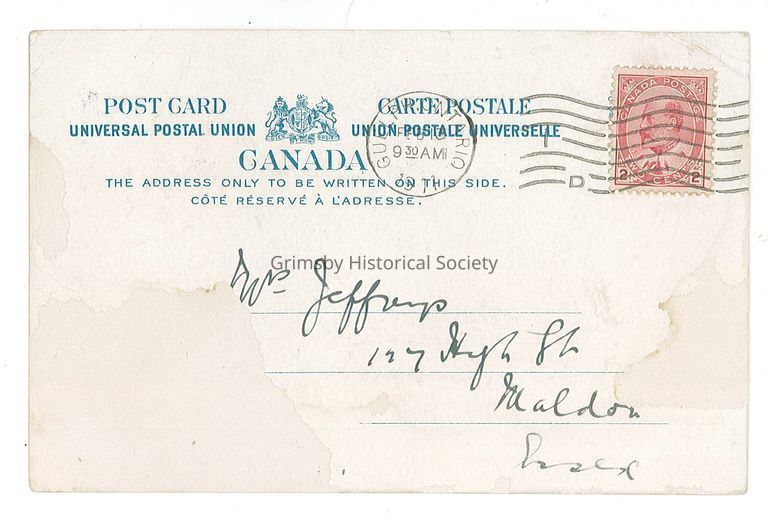 POST CARD CARTE POSTALE
UNIVERSAL POSTAL UNION UNION POSTALE UNIVERSELLE
CANADA
THE ADDRESS ONLY TO BE WRITTEN ON THIS SIDE.
CÔTÉ RÉSERVÉ À L'ADRESSE.
GUELPH ONTARIO
9 30 AM
D
CANADA POSTAGE
2 2
TWO CENTS
Grimsby Historical Society
Mrs Jefferys
127 High St
Maldon
Essex